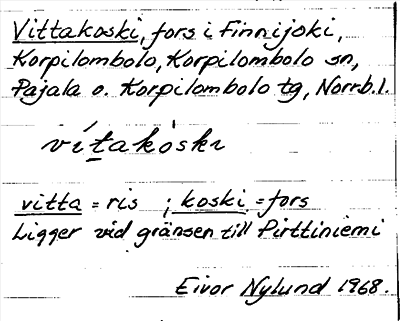 Vittakoski, fors i Finnijoki,
Korpilombolo, Korpilombolo sn,
Pajala o. Korpilombolo tg, Norrb.l.
vítakóski
vitta = ris ; koski = fors
Ligger vid gränsen till Pirttiniemi
Eivor Nylund 1968.